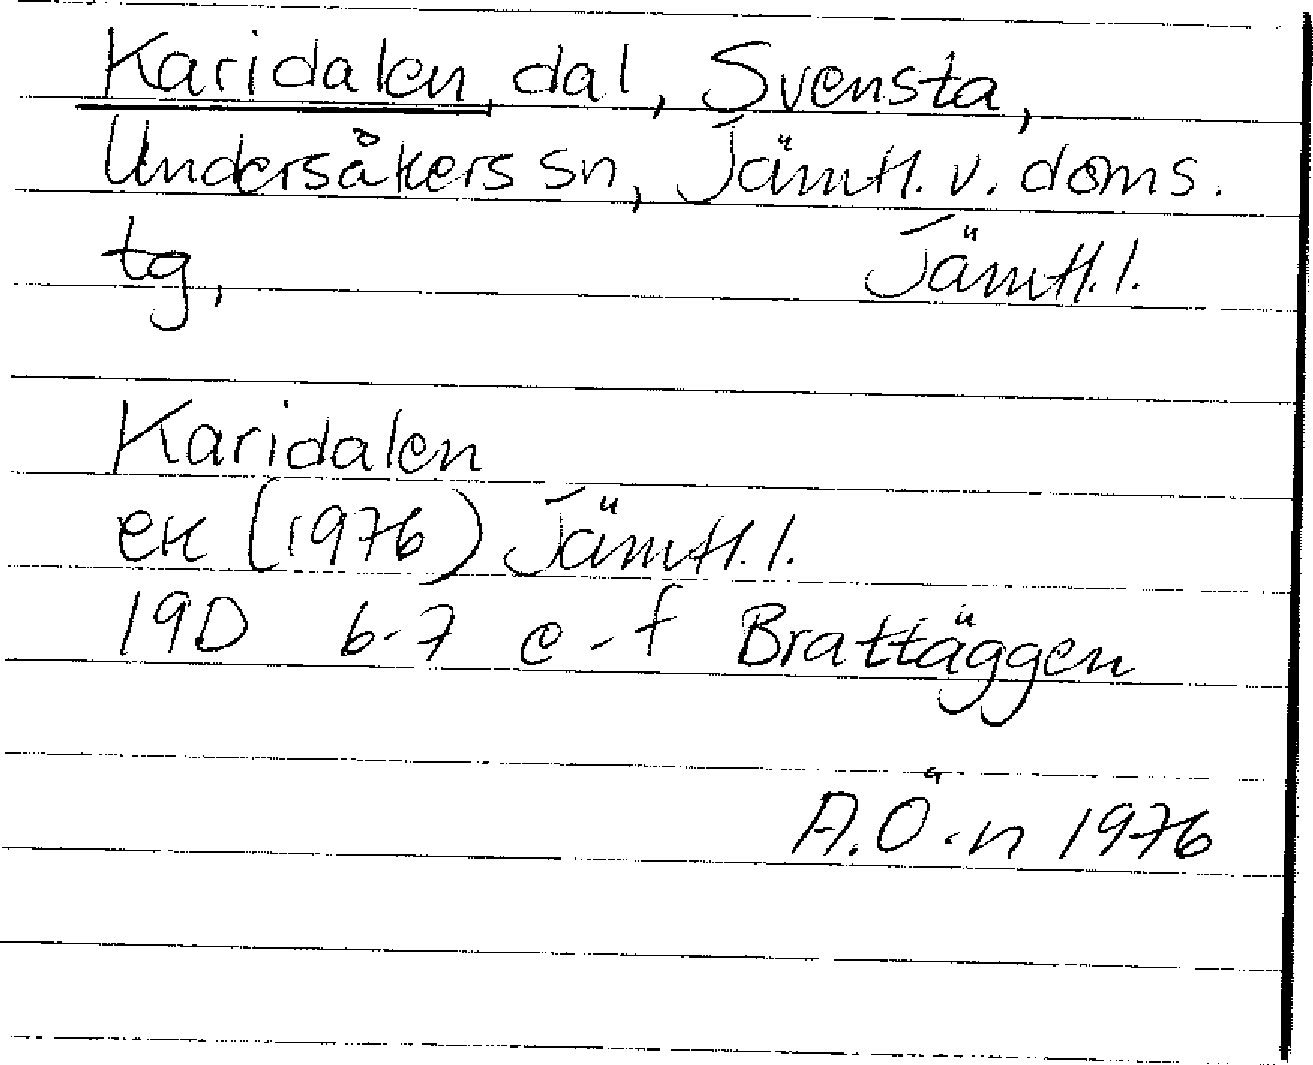 Karidalen, dal, Svensta,
Undersåkers sn, Jämtl. v. doms.
tg, Jämtl. l.
Karidalen
ek (1976) Jämtl. l.
19D 6-7 e-f Brattäggen
A.Ö-n 1976